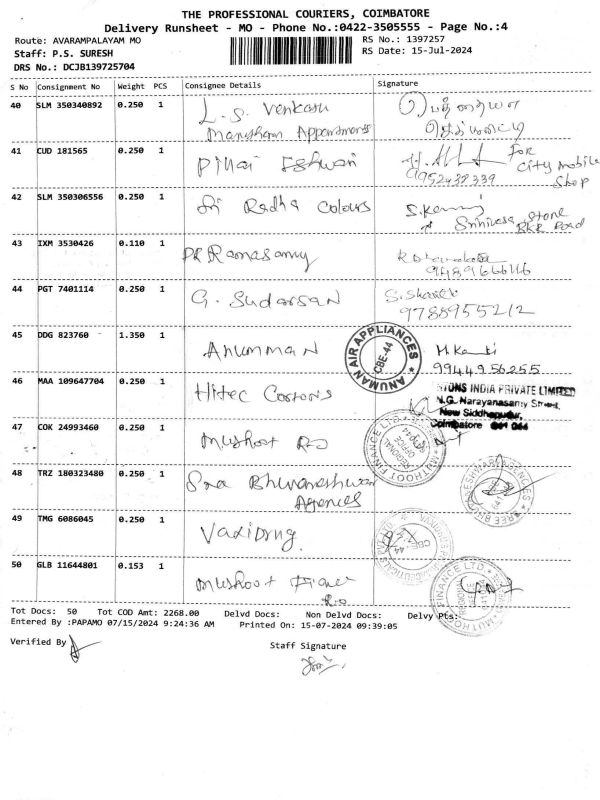 THE PROFESSIONAL COURIERS, COIMBATORE
Delivery Runsheet - MO - Phone No.:0422-3505555 - Page No.:4
Route: AVARAMPALAYAM MO RS No.: 1397257
Staff: P.S. SURESH RS Date: 15-Jul-2024
DRS No.: DCJB139725704
S No Consignment No Weight PCS Consignee Details Signature
40 SLM 350340892 0.250 1 L.S. Venkasu
Appartments
41 CUD 181565 0.250 1 Pillai Eshwari For
City Mobile
9952438339 Shop
42 SLM 350306556 0.250 1 Sri Radha Colours
Srinivasa Stone
RKR Road
43 IXM 3530426 0.110 1 PR Ramasamy
44 PGT 7401114 0.250 1 G. Sudarsan
9788955212
45 DDG 823760 1.350 1 Anumman
ANUMAN AIR APPLIANCES
CBE-44
9944956255
46 MAA 109647704 0.250 1 Hitec
INDIA PRIVATE LIMITED
N.G. Narayanasamy Street,
New Siddhapudur,
Coimbatore
47 COK 24993460 0.250 1 Muthoot RO
MUTHOOT FINANCE LTD
48 TRZ 180323480 0.250 1 Sree Bhuvaneshwari
Agencies
49 TMG 6086045 0.250 1
50 GLB 11644801 0.153 1 Muthoot Finance
R.O
MUTHOOT FINANCE LTD
Tot Docs: 50 Tot COD Amt: 2268.00 Delvd Docs: Non Delvd Docs: Delvy Pts:
Entered By :PAPAMO 07/15/2024 9:24:36 AM Printed On: 15-07-2024 09:39:05
Verified By Staff Signature